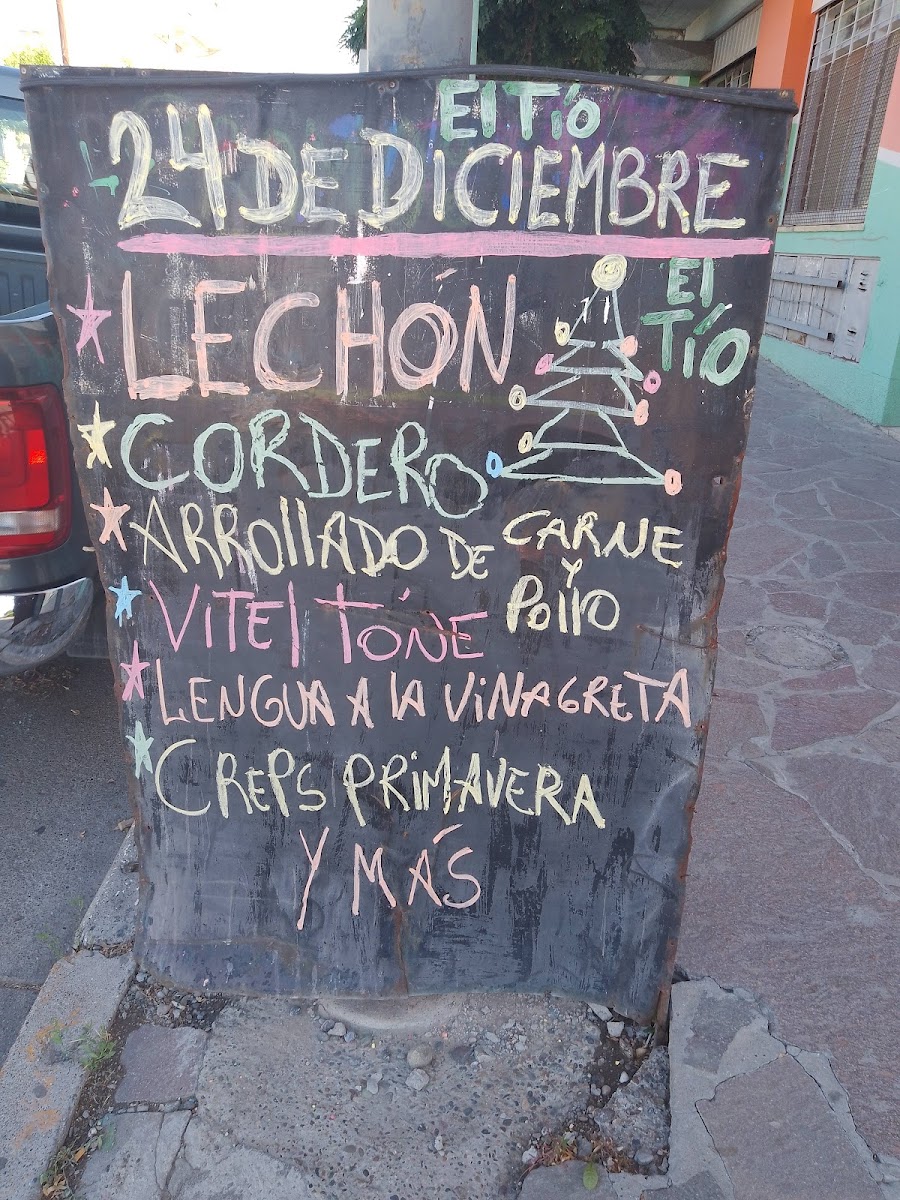 El Tío
24 DE DICIEMBRE
LECHÓN
El
Tío
CORDERO
ARROllADO DE CARNE
y
Pollo
VITEl TÓNE
LENGUA A lA VINAGRETA
CREPS PRIMAVERA
Y MÁS